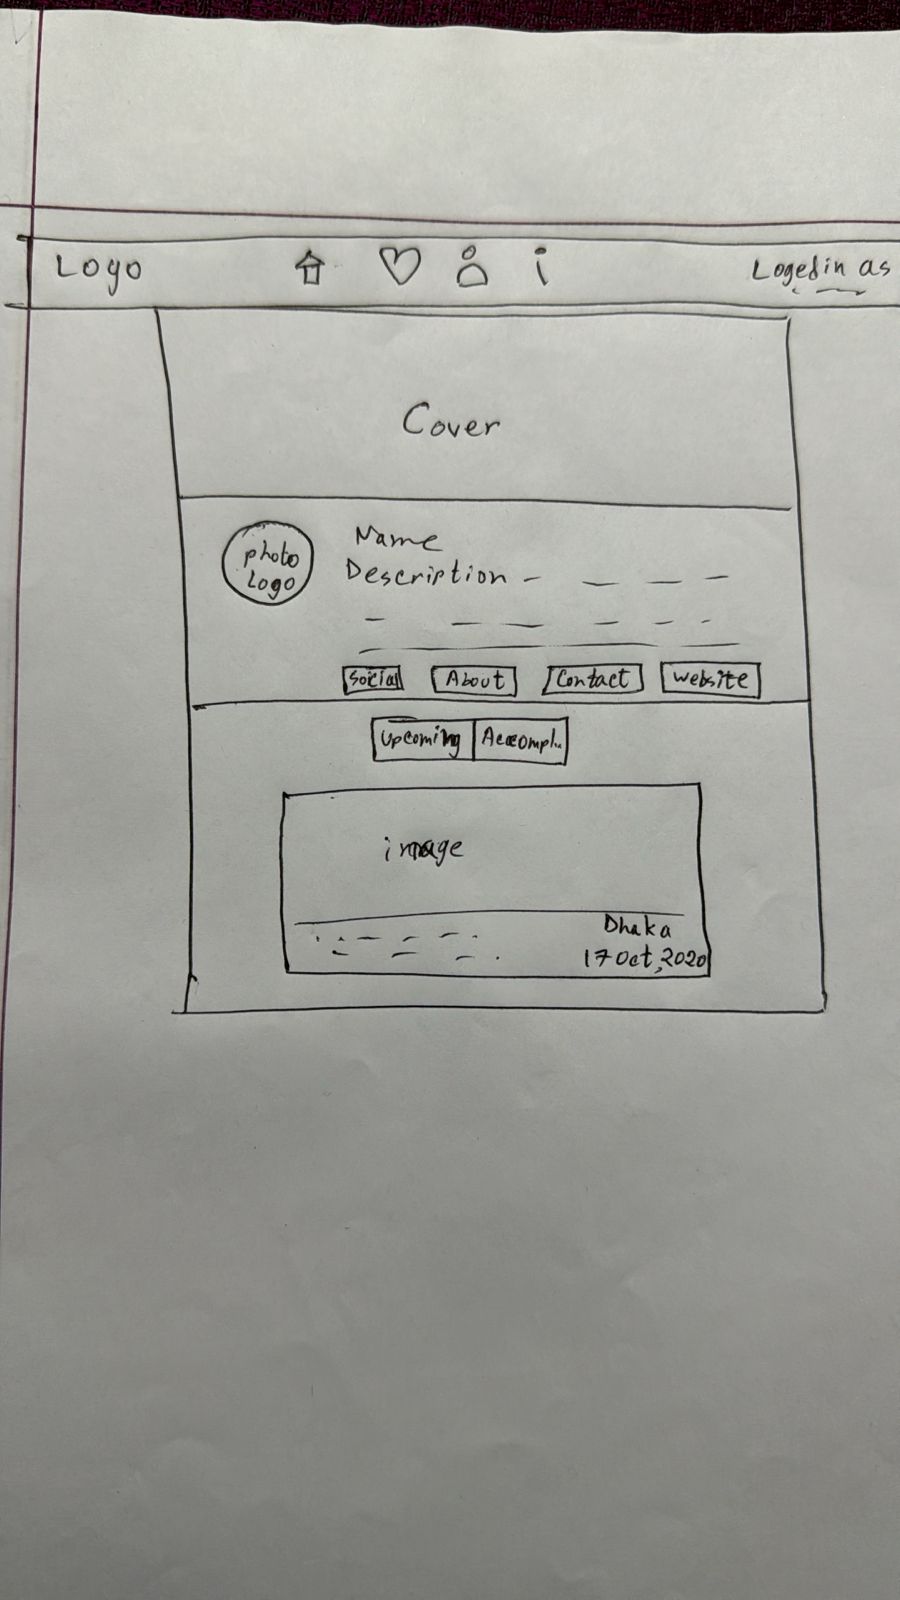 Logo
Loged in as
Cover
photo
Logo
Name
Description
Social
About
Contact
Website
Upcoming
Accompl..
image
Dhaka
17 Oct, 2020